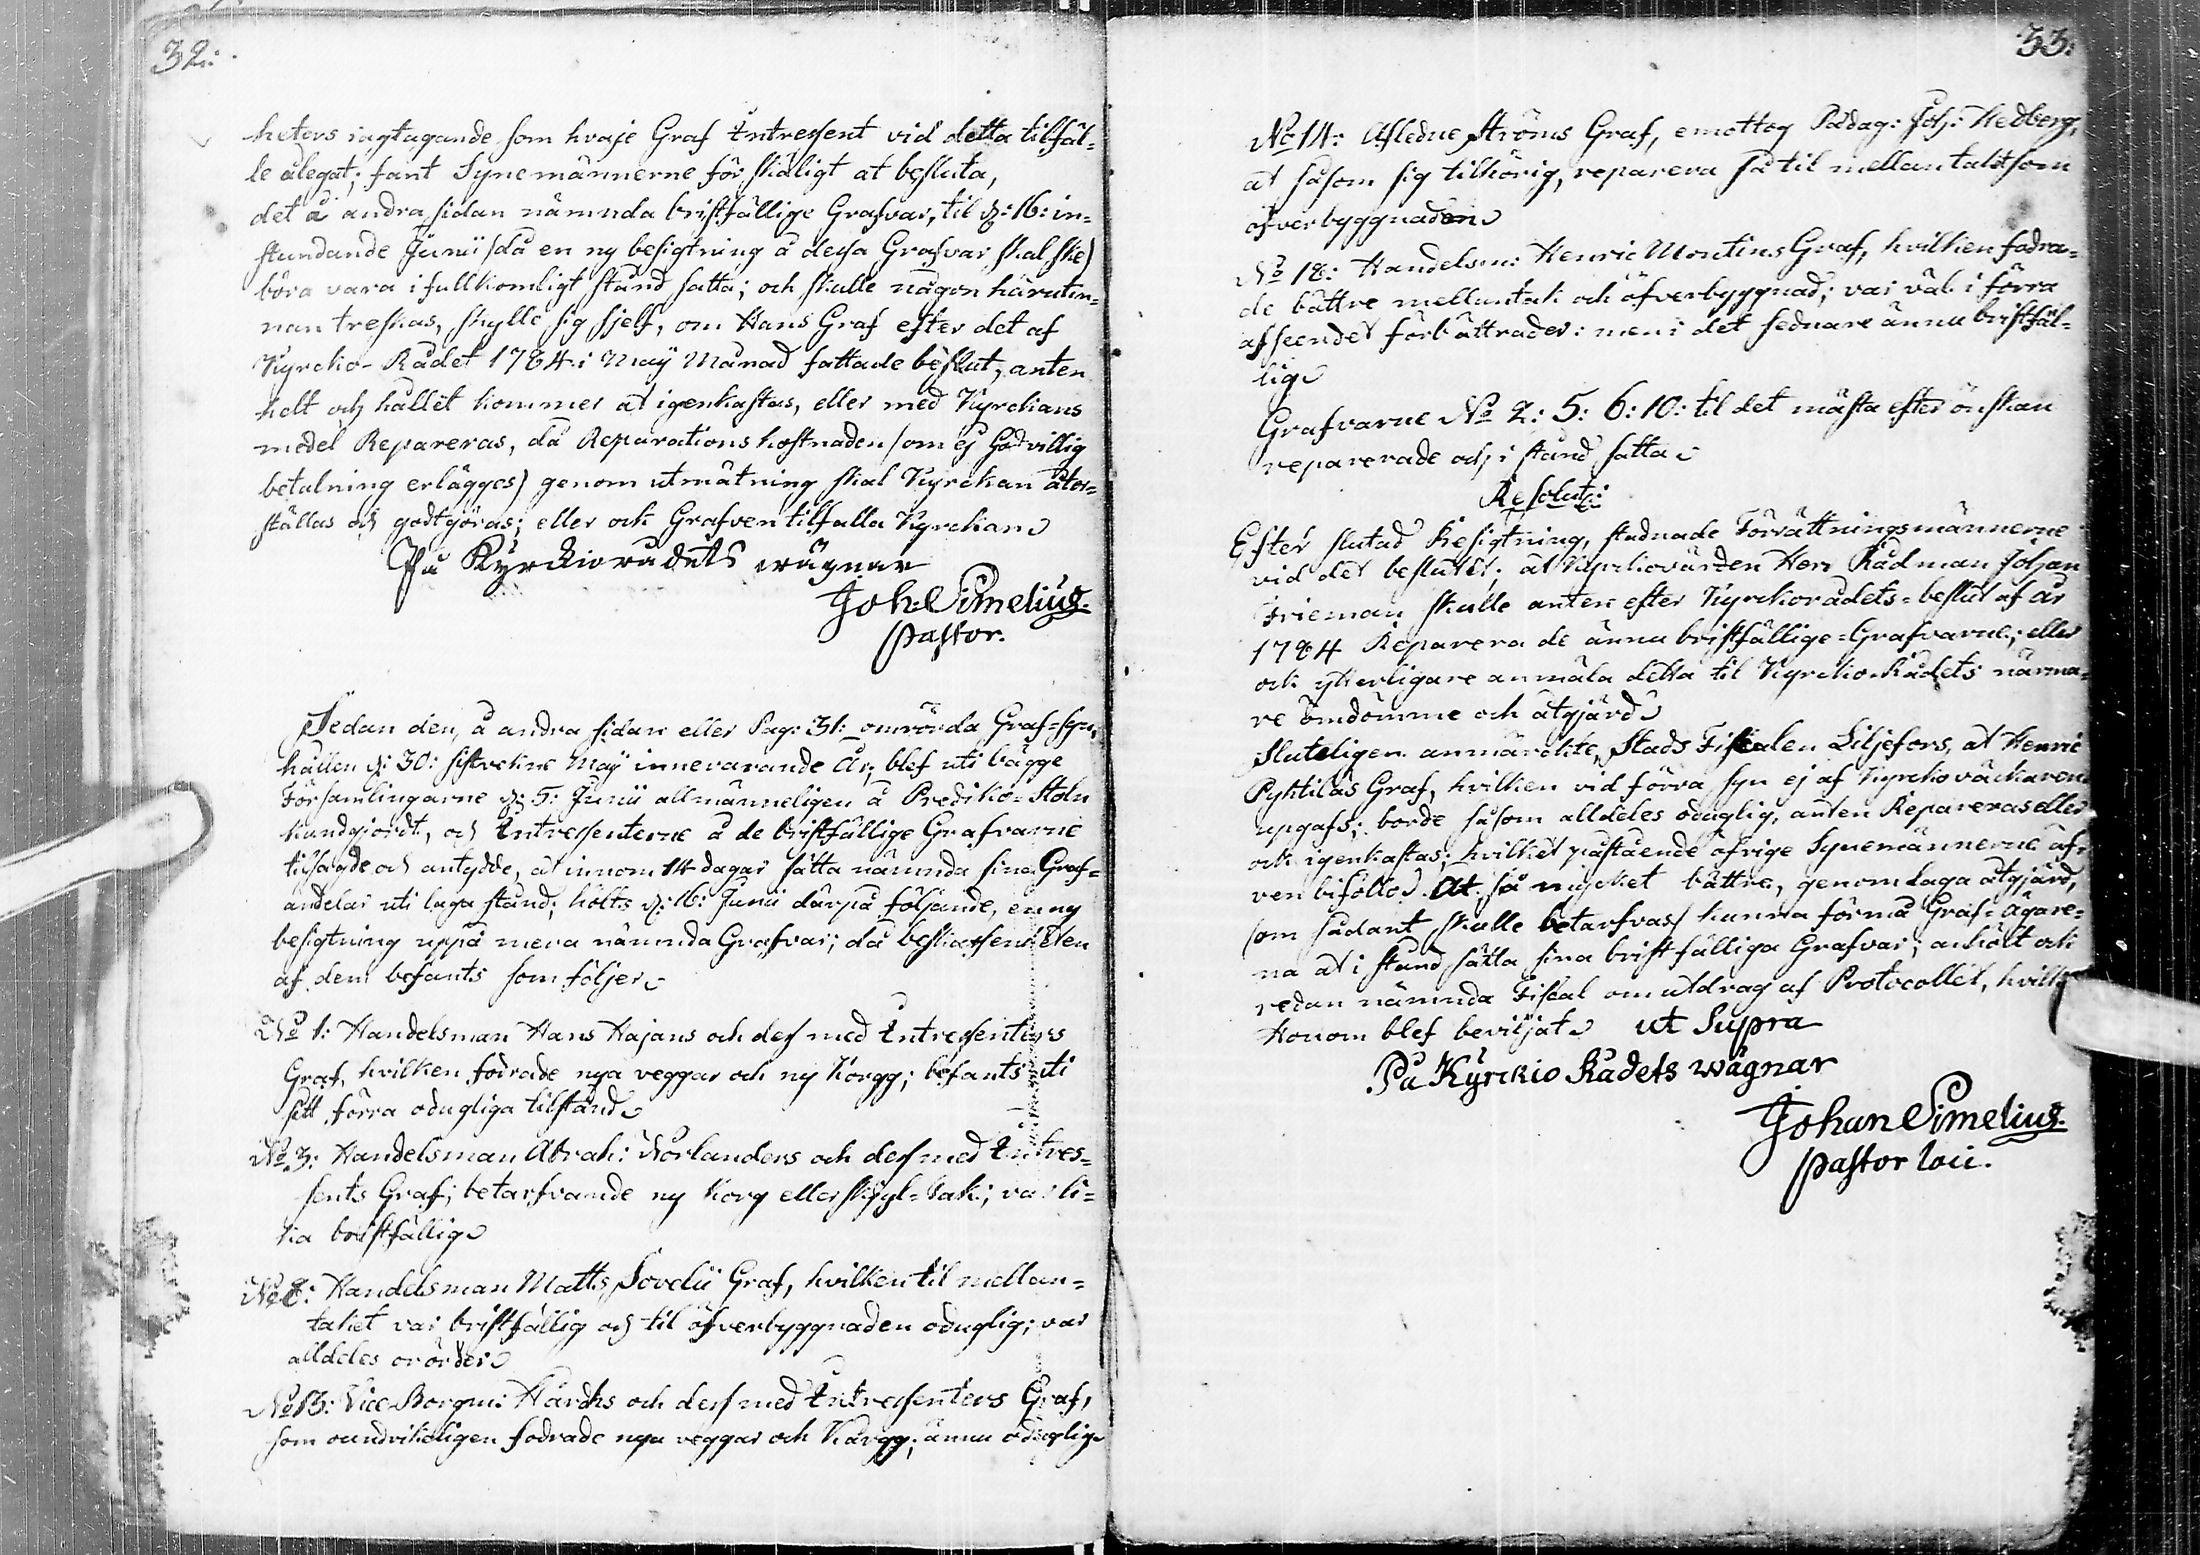 32:
heters iagtagande som hvarje Graf Intressent vid detta tilfäl=
le ålegat; fant Synemännerne för skäligt at besluta,
det å andra sidan nämnda bristfällige Grafvar, til d: 16: in=
stundande Junii (då en ny besigtning å dessa Grafvar skal ske)
böra vara i fullkomligt stånd satta; och skulle någon härutin=
nan treskas, skylle sig sjelf, om Hans Graf efter det af
Kyrcko-Rådet 1784 i Maÿ Månad fattade beslut, anten
helt och hållet kommer at igenkastas, eller med Kyrckans
medel Repareras, då Reparations kostnaden (om ej Godvillig
betalning erlägges) genom utmätning skal Kyrckan åter=
ställas och godtgöras; eller ock Grafven tilfalla Kyrckan.
På Kyrckiorådets wägnar
Joh: Simelius.
pastor.
Sedan den, å andra sidan eller Pag: 31: omrörda Graf=syn,
hållen d: 30: sistvekne Maÿ innevarande År, blef uti bägge
Församlingarne d: 5: Junii allmänneligen å Prediko=Stoln
kundgjordt, och Intressenterne å de bristfällige Grafvarne
tilsagde och antydde, at innom 14 dagar sätta nämnda sina Graf=
andelar uti laga stånd; hölts d: 16: Junii därpå följande, en ny
besigtning uppå mera nämnda Grafvar; då beskaffenheten
af dem befants som följer.
No 1: Handelsman Hans Hajans och dess med Intressenters
Graf, hvilken fodrade nya veggar och ny Korgg; befants uti
sitt förra odugliga tilstånd.
No 3: Handelsman Abrah: Norlanders och dess med Intres=
sents Graf; betarfvande ny Korg eller skyl=tak; var li=
ka bristfällig.
No 8: Handelsman Matts Lovelii Graf, hvilken til mellan=
taket var bristfällig och til öfverbyggnaden oduglig; var
alldeles orörder.
No 13: Vice Borgm: Hårdhs och dess med Intressenters Graf,
som oundvikeligen fodrade nya veggar och Korgg; ännu oduglig.
33:
No 14: Afledne Ströms Graf, emottog Pædag: Joh: Hedberg,
at såsom sig tilhörig, reparera så til mellantaket som
öfverbyggnaden.
No 18: Handelsm: Henric Montins Graf, hvilken fodra=
de bättre mellantak och öfverbyggnad; var väl i förra
afseendet förbättrader: men i det sednare ännu bristfäl=
lig.
Grafvarne No 2: 5: 6: 10: til det mästa efter önskan
reparerade och i stånd satta.
Resolut:
Efter slutad Besigtning, stadnade Förrättningsmännerne
vid det beslutet; at Kyrckovärden Herr Rådman Johan
Frieman skulle anten efter Kyrckorådets=beslut af år
1784 Reparera de ännu bristfällige=Grafvarne; eller
ock ytterligare anmäla detta til Kyrcko-Rådets närma=
re omdömme och åtgjärd.
Sluteligen anmärckte Stads Fiscalen Liljefors, at Henric
Pyhtiläs Graf, hvilken vid förra syn ej af Kyrckoväcktaren
upgafs; borde såsom alldeles oduglig, anten Repareras eller
ock igenkastas; hvilket påstående öfrige Synemännerne äf=
ven biföllo. At så mycket bättre, genom laga åtgjärd,
(om sådant skulle betarfvas) kunna förmå Graf=Ägare=
na at i stånd sätta sina bristfälliga Grafvar; anhölt ock
redan nämnda Fiscal om utdrag af Protocollet, hvilket
Honom blef beviljat. ut Supra
På Kyrckio Rådets wägnar
Johan Simelius.
pastor loci.